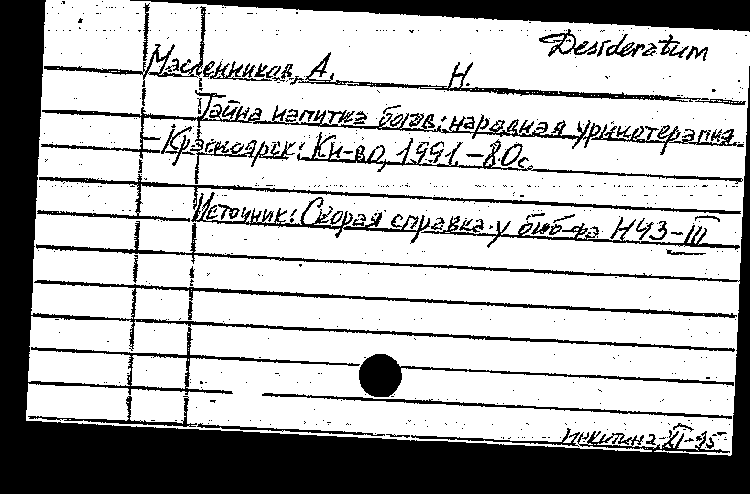 Desideratum
Масленников, А. Н.
Тайна напитка богов: народная уринотерапия.
— Красноярск: Кн-во, 1991. – 80с.
Источник: Скорая справка у биб-ра НЧЗ-III
Никитина, XI-95